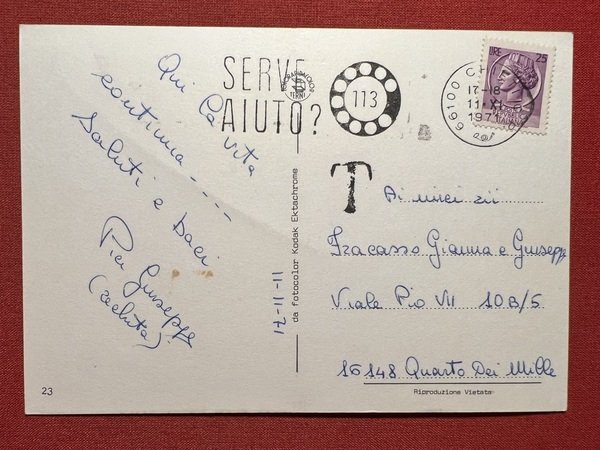 Qui la vita
continua ----
Saluti e baci
Pier Giuseppe
(recluta)
SERVE
AIUTO?
113
TERNI
LIRE 25
66100 CH
17-18
11·XI
1971
T
da fotocolor Kodak Ektachrome
17-11-11
Ai miei zii
Fracasso Gianna e Giuseppe
Viale Pio VII 10B/5
16148 Quarto Dei Mille
23
Riproduzione Vietata